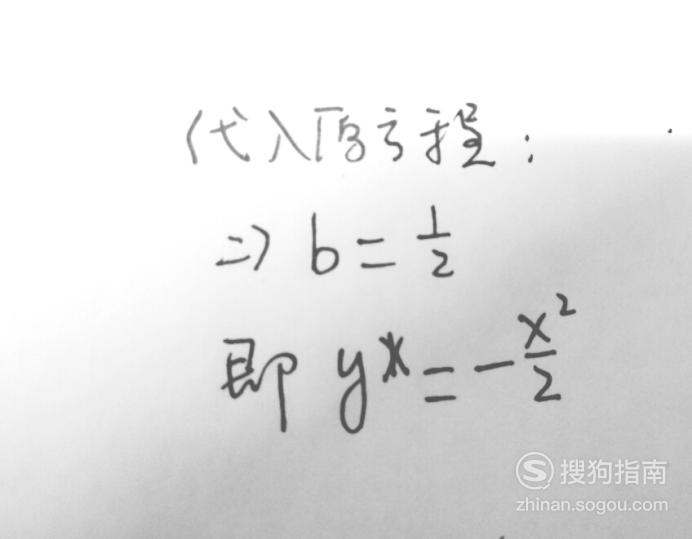 代入原方程:
=> b = 1/2
即 y* = -x²/2
搜狗指南
zhinan.sogou.com